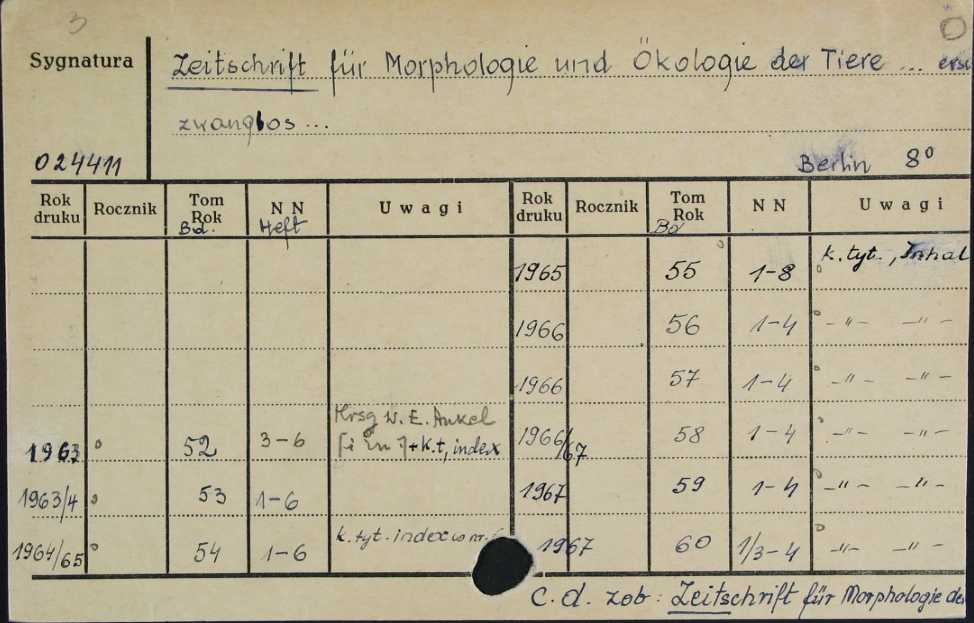 3
Sygnatura Zeitschrift für Morphologie und Ökologie der Tiere ...
zwanglos ...
024411 Berlin 8°
Rok druku Rocznik Tom Rok N N Uwagi Rok druku Rocznik Tom Rok N N Uwagi
Bd. Heft Bd
1965 55 1-8 k. tyt., Inhal
1966 56 1-4 -"- -"-
1966 57 1-4 -"- -"-
1963 52 3-6 Hrsg W. E. Ankel + k.t, index 1966/67 58 1-4 -"- -"-
1963/4 53 1-6 1967 59 1-4 -"- -"-
1964/65 54 1-6 k. tyt. index w nr. 1967 60 1/3-4 -"- -"-
C. d. zob: Zeitschrift für Morphologie de